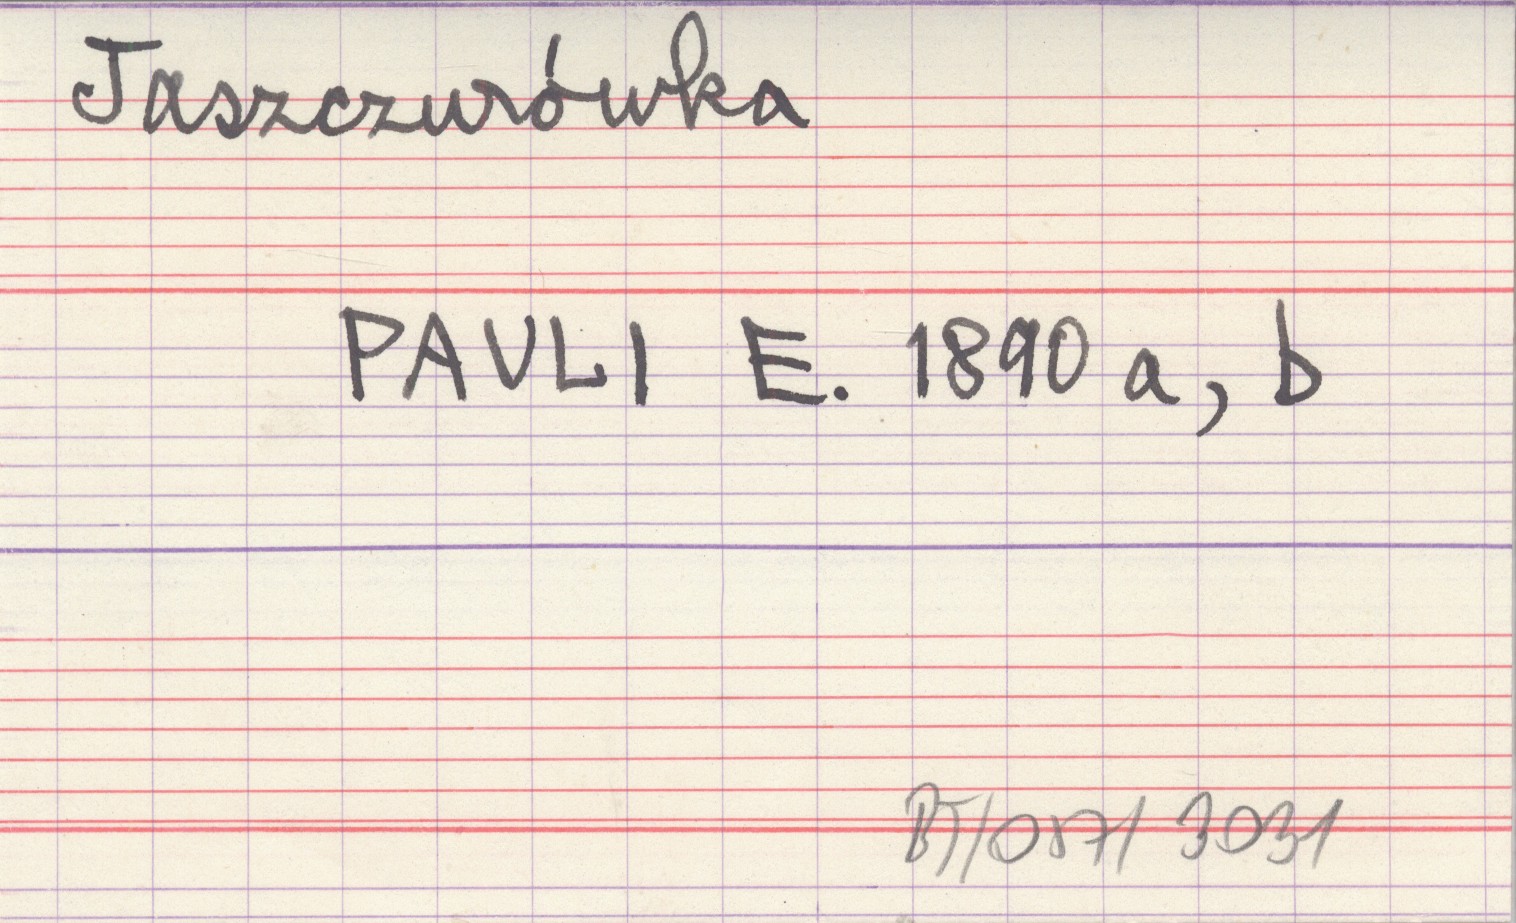 Jaszczurówka
PAULI E. 1890 a, b
BT/057/ 3031